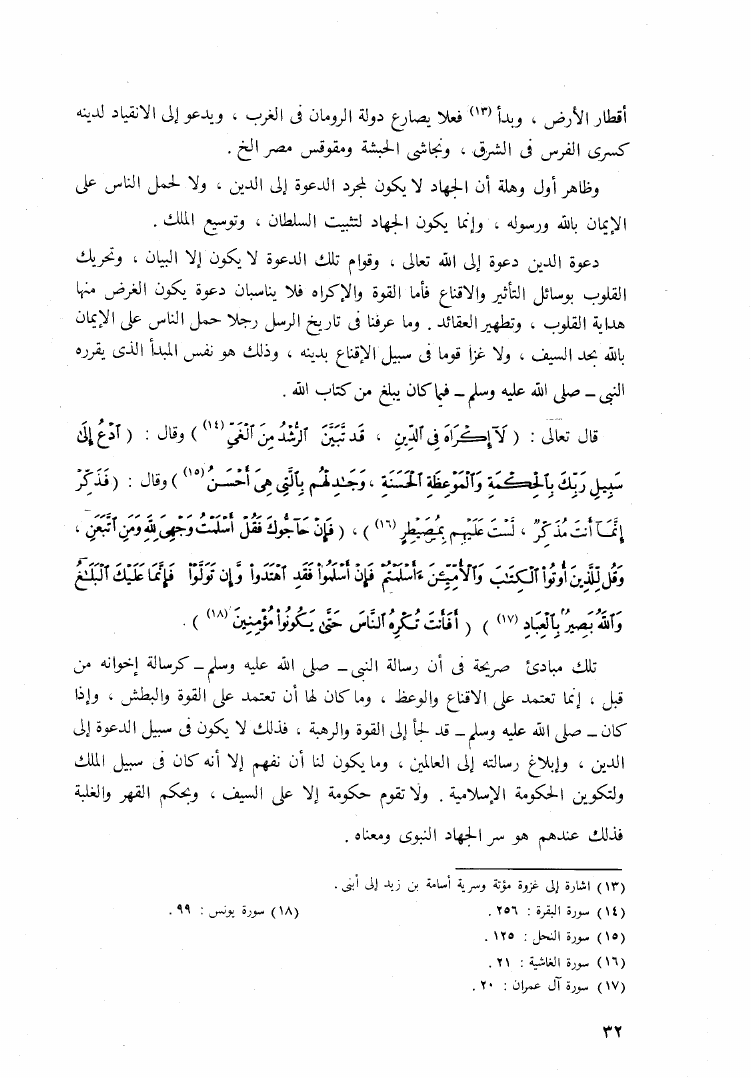 أقطار الأرض ، وبدأ (١٣) فعلا يصارع دولة الرومان فى الغرب ، ويدعو إلى الانقياد لدينه
كسرى الفرس فى الشرق ، ونجاشى الحبشة ومقوقس مصر الخ .
وظاهر أول وهلة أن الجهاد لا يكون لمجرد الدعوة إلى الدين ، ولا لحمل الناس على
الإيمان بالله ورسوله ، وإنما يكون الجهاد لتثبيت السلطان ، وتوسيع الملك .
دعوة الدين دعوة إلى الله تعالى ، وقوام تلك الدعوة لا يكون إلا البيان ، وتحريك
القلوب بوسائل التأثير والاقناع فأما القوة والإكراه فلا يناسبان دعوة يكون الغرض منها
هداية القلوب ، وتطهير العقائد . وما عرفنا فى تاريخ الرسل رجلا حمل الناس على الإيمان
بالله بحد السيف ، ولا غزا قوما فى سبيل الإقناع بدينه ، وذلك هو نفس المبدأ الذى يقرره
النبى ـ صلى الله عليه وسلم ـ فيما كان يبلغ من كتاب الله .
قال تعالى : ( لَآ إِكْرَاهَ فِى ٱلدِّينِ ، قَد تَّبَيَّنَ ٱلرُّشْدُ مِنَ ٱلْغَىِّ (١٤) ) وقال : ( ٱدْعُ إِلَىٰ
سَبِيلِ رَبِّكَ بِٱلْحِكْمَةِ وَٱلْمَوْعِظَةِ ٱلْحَسَنَةِ ، وَجَـٰدِلْهُم بِٱلَّتِى هِىَ أَحْسَنُ (١٥) ) وقال : ( فَذَكِّرْ
إِنَّمَآ أَنتَ مُذَكِّرٌ ، لَّسْتَ عَلَيْهِم بِمُصَيْطِرٍ (١٦) ) ، ( فَإِنْ حَآجُّوكَ فَقُلْ أَسْلَمْتُ وَجْهِىَ لِلَّهِ وَمَنِ ٱتَّبَعَنِ ،
وَقُل لِّلَّذِينَ أُوتُوا۟ ٱلْكِتَـٰبَ وَٱلْأُمِّيِّـۧنَ ءَأَسْلَمْتُمْ فَإِنْ أَسْلَمُوا۟ فَقَدِ ٱهْتَدَوا۟ وَّإِن تَوَلَّوْا۟ فَإِنَّمَا عَلَيْكَ ٱلْبَلَـٰغُ
وَٱللَّهُ بَصِيرٌۢ بِٱلْعِبَادِ (١٧) ) ( أَفَأَنتَ تُكْرِهُ ٱلنَّاسَ حَتَّىٰ يَكُونُوا۟ مُؤْمِنِينَ (١٨) ) .
تلك مبادئ صريحة فى أن رسالة النبى ـ صلى الله عليه وسلم ـ كرسالة إخوانه من
قبل ، إنما تعتمد على الاقناع والوعظ ، وما كان لها أن تعتمد على القوة والبطش ، وإذا
كان ـ صلى الله عليه وسلم ـ قد لجأ إلى القوة والرهبة ، فذلك لا يكون فى سبيل الدعوة إلى
الدين ، وإبلاغ رسالته إلى العالمين ، وما يكون لنا أن نفهم إلا أنه كان فى سبيل الملك
ولتكوين الحكومة الإسلامية . ولا تقوم حكومة إلا على السيف ، وبحكم القهر والغلبة
فذلك عندهم هو سر الجهاد النبوى ومعناه .
(١٣) اشارة إلى غزوة مؤتة وسرية أسامة بن زيد إلى أبنى .
(١٤) سورة البقرة : ٢٥٦ . (١٨) سورة يونس : ٩٩ .
(١٥) سورة النحل : ١٢٥ .
(١٦) سورة الغاشية : ٢١ .
(١٧) سورة آل عمران : ٢٠ .
٣٢